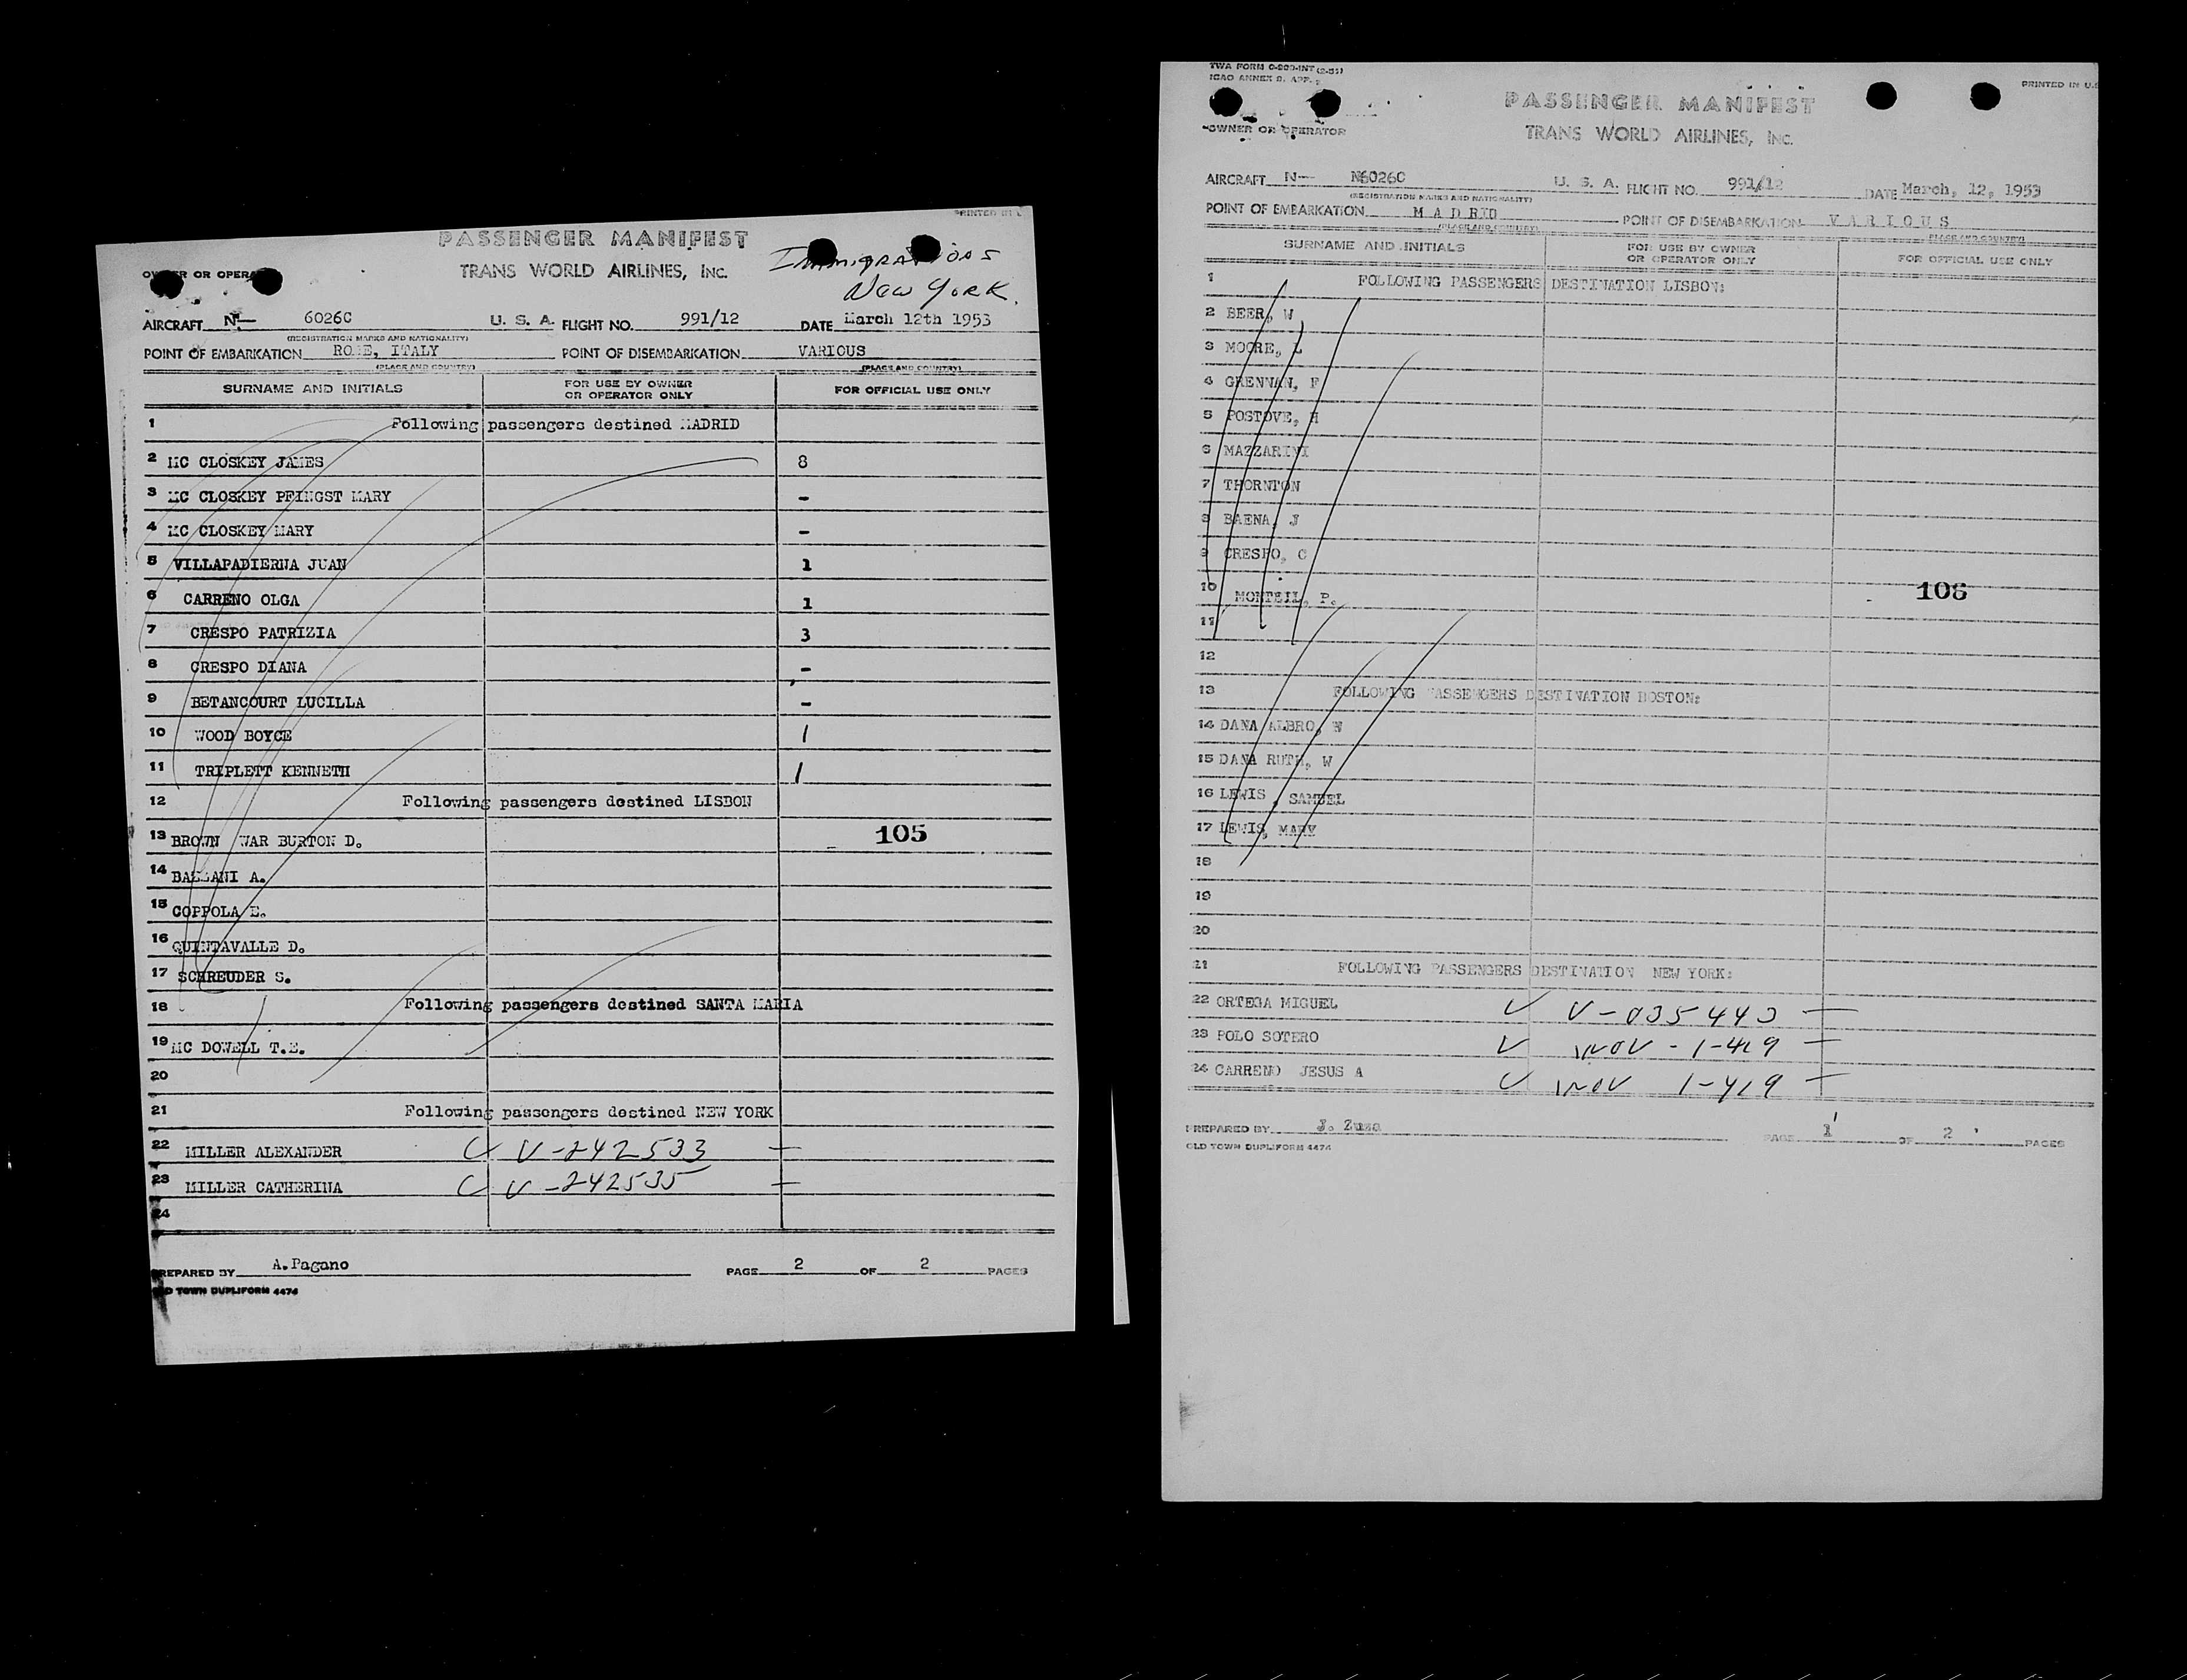 PRINTED IN U
PASSENGER MANIFEST
OWNER OR OPERATOR
TRANS WORLD AIRLINES, INC.
IMMIGRATIONS
NEW YORK.
AIRCRAFT N— 6026C U. S. A. FLIGHT NO. 991/12 DATE March 12th 1953
(REGISTRATION MARKS AND NATIONALITY)
POINT OF EMBARKATION ROME, ITALY POINT OF DISEMBARKATION VARIOUS
(PLACE AND COUNTRY) (PLACE AND COUNTRY)
SURNAME AND INITIALS FOR USE BY OWNER OR OPERATOR ONLY FOR OFFICIAL USE ONLY
1 Following passengers destined MADRID
2 MC CLOSKEY JAMES 8
3 MC CLOSKEY PFINGST MARY -
4 MC CLOSKEY MARY -
5 VILLAPADIERNA JUAN 1
6 CARRENO OLGA 1
7 CRESPO PATRIZIA 3
8 CRESPO DIANA -
9 BETANCOURT LUCILLA -
10 WOOD BOYCE 1
11 TRIPLETT KENNETH 1
12 Following passengers destined LISBON
13 BROWN WAR BURTON D. 105
14 A.
15 COPPOLA E.
16 QUINTAVALLE D.
17 SCHREUDER S.
18 Following passengers destined SANTA MARIA
19 MC DOWELL T.E.
20
21 Following passengers destined NEW YORK
22 MILLER ALEXANDER V-242533 —
23 MILLER CATHERINA V-242535 —
24
PREPARED BY A.Pagano PAGE 2 OF 2 PAGES
OLD TOWN DUPLIFORM 4474
TWA FORM
ICAO ANNEX 9, APP.
PRINTED IN U.S
PASSENGER MANIFEST
OWNER OR OPERATOR
TRANS WORLD AIRLINES, INC.
AIRCRAFT N— N6026C U. S. A. FLIGHT NO. 991/12 DATE March, 12, 1953
(REGISTRATION MARKS AND NATIONALITY)
POINT OF EMBARKATION M A D R I D POINT OF DISEMBARKATION V A R I O U S
(PLACE AND COUNTRY) (PLACE AND COUNTRY)
SURNAME AND INITIALS FOR USE BY OWNER OR OPERATOR ONLY FOR OFFICIAL USE ONLY
1 FOLLOWING PASSENGERS DESTINATION LISBON:
2 BEER, W
3 MOORE, L
4 GRENNAN, F
5 POSTOVE, H
6 MAZZARINI
7 THORNTON
8 BAENA, J
9 CRESPO, C
10 MONTEIL, P. 106
11
12
13 FOLLOWING PASSENGERS DESTINATION BOSTON:
14 DANA ALBRO, N
15 DANA RUTH, W
16 LEWIS , SAMUEL
17 LEWIS, MARY
18
19
20
21 FOLLOWING PASSENGERS DESTINATION NEW YORK:
22 ORTEGA MIGUEL V-035443 —
23 POLO SOTERO WOV - 1-419 —
24 CARRENO JESUS A WOV 1-419 —
PREPARED BY J. Zuza PAGE 1 OF 2 PAGES
OLD TOWN DUPLIFORM 4474